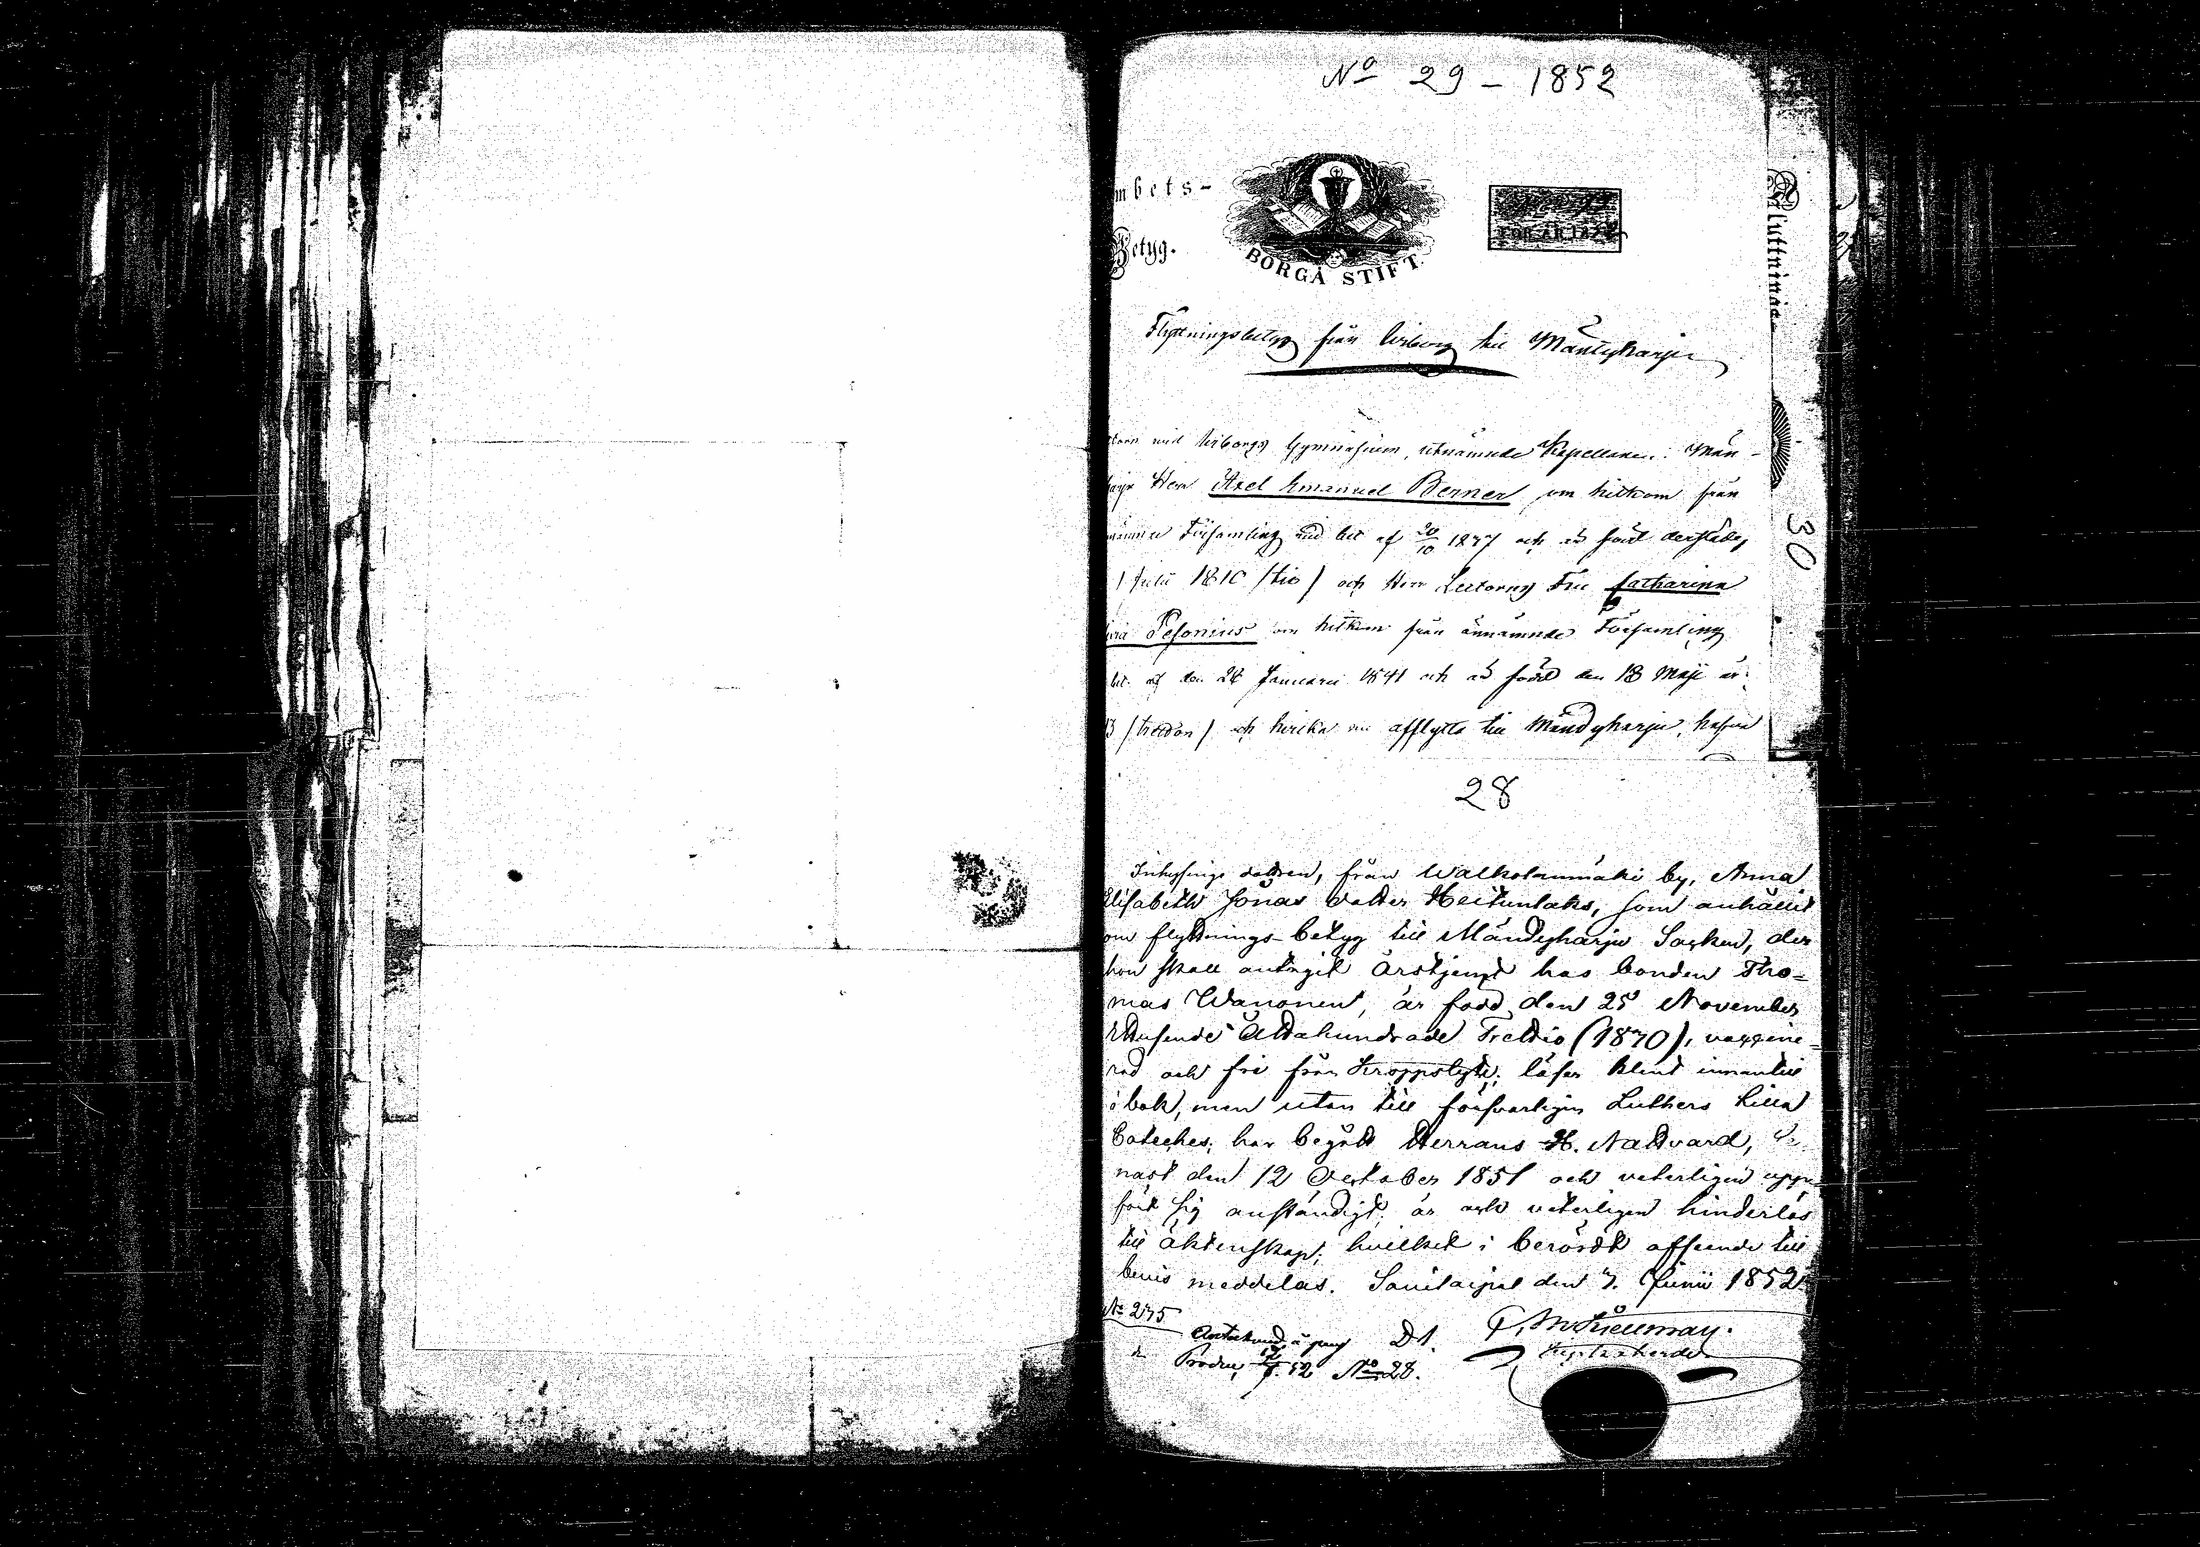 No 29 - 1852
mbets-
Betyg.
BORGÅ STIFT.
Flyttningsbetyg från Wiborg till Mäntyharju
wid Wiborgs Gymnasium, utnämnde Kapellanen i Män-
harju Herr Axel Emanuel Berner, som hitkom från
Församling med bet. af 20/10 1847 och är född derstädes
1 Julii 1810 /tio/ och Herr Lectorns Fru Catharina
Pesonius som hitkom från nämnde Församling
bet. af den 28 Januarii 1841 och är född den 18 Maji år
13 /tretton/ och hvilka nu afflytta till Mändyharju,
Flyttnings
30
28
Inhysings dottren, från Walkolammäki by, Anna
Elisabeth Jonas dotter Heitunlaks, som anhållit
om flyttnings-betyg till Mändyharju Socken, der
hon skall antagit årstjenst hos bonden Tho-
mas Wanonen, är född den 25 November
Ettusende Åttahundrade Trettio (1830), vaccine-
rad och fri från Kroppslyte; läser klent innantill
i bok, men utan till försvarligen Luthers Lilla
Cateches; har begått Herrans H. Nattvard,
nast den 12 October 1851 och veterligen upp-
fört sig anständigt; är och veterligen hinderlös
till äktenskap; hvilket i berördt afseende till
bevis meddelas. Savitaipal den 7. Junii 1852.
No 275
D 1.
No 28.